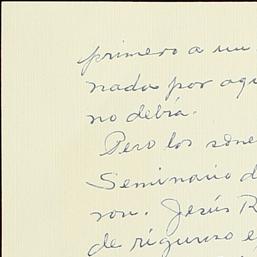 primero a un
nada por aqu
no debía.
Pero los sone
Seminario d
son. Jesús R
de riguroso e